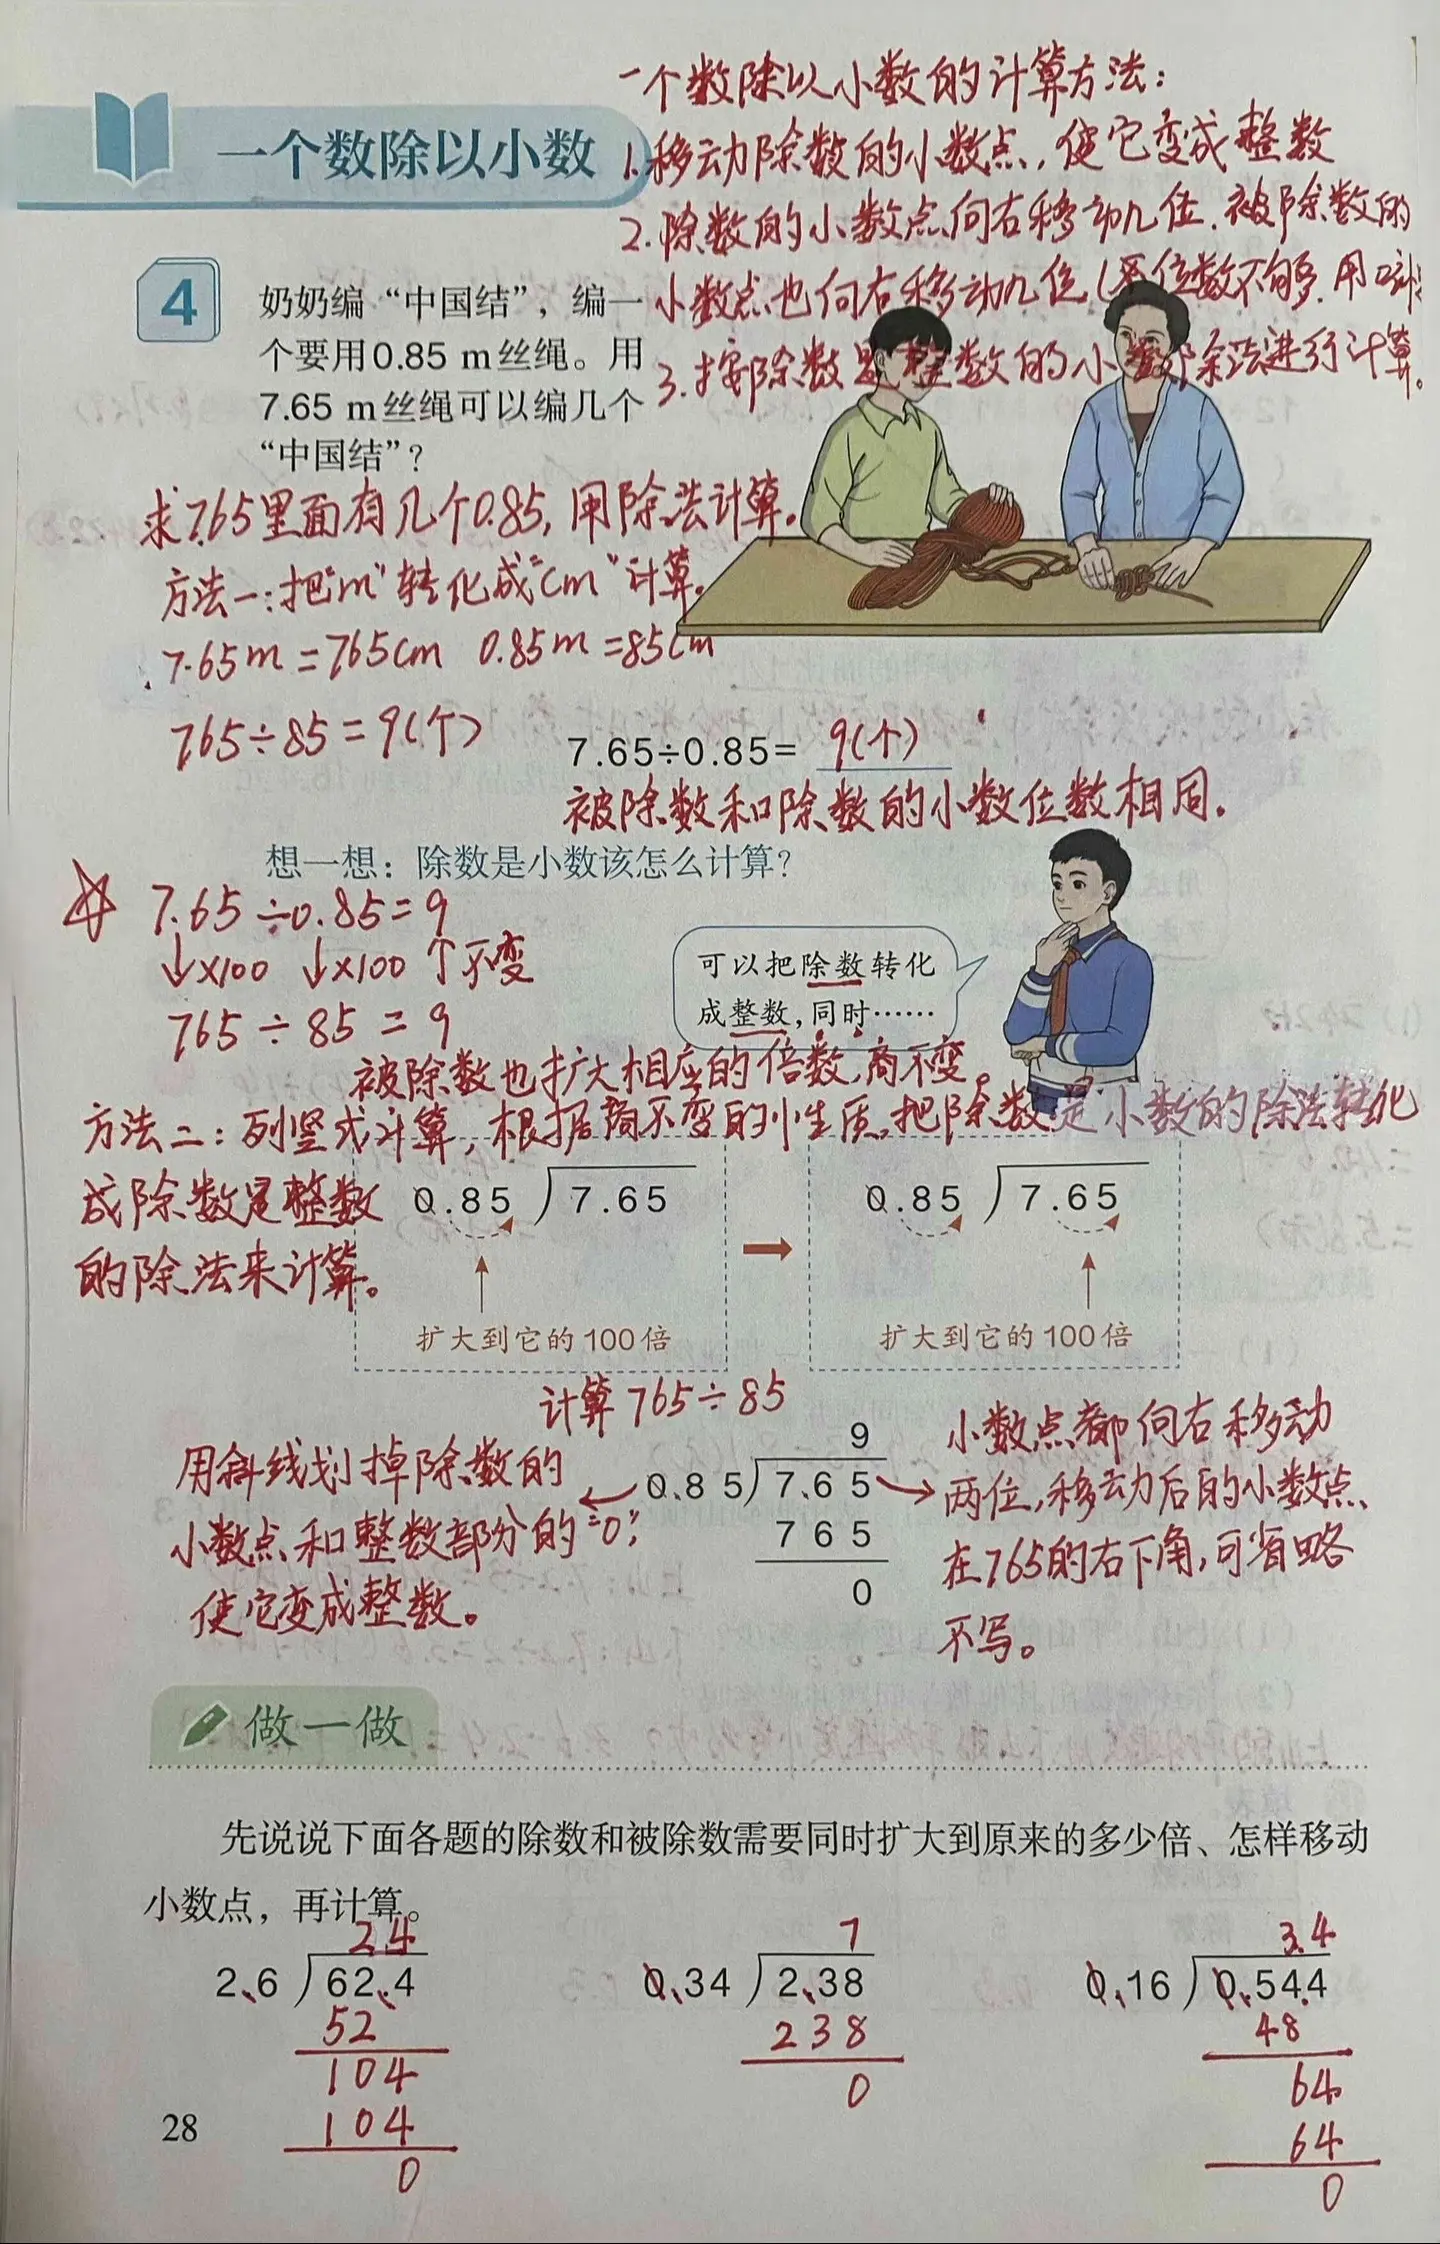 一个数除以小数的计算方法：
1.移动除数的小数点，使它变成整数
2.除数的小数点向右移动几位.被除数的
小数点也向右移动几位(位数不够.用
3.按除数是整数的小数除法进行计算。
一个数除以小数
4
奶奶编“中国结”，编一
个要用0.85 m丝绳。用
7.65 m丝绳可以编几个
“中国结”？
求7.65里面有几个0.85,用除法计算。
方法一:把“m”转化成“cm”计算。
7.65m=765cm 0.85m=85cm
765÷85=9(个)
7.65÷0.85= 9(个)
被除数和除数的小数位数相同.
想一想：除数是小数该怎么计算？
7.65÷0.85=9
↓×100 ↓×100 ↑不变
765÷85=9
可以把除数转化
成整数，同时……
被除数也扩大相应的倍数,商不变。
方法二：列竖式计算，根据商不变的性质,把除数是小数的除法转化
成除数是整数
的除法来计算。
0.85 7.65
扩大到它的100倍
→
0.85 7.65
扩大到它的100倍
计算765÷85
用斜线划掉除数的
小数点和整数部分的“0”,
使它变成整数。
9
0.85 7.65
765
0
小数点都向右移动
两位,移动后的小数点
在765的右下角,可省略
不写。
做一做
先说说下面各题的除数和被除数需要同时扩大到原来的多少倍、怎样移动
小数点，再计算。
24
2.6 62.4
52
104
104
0
7
0.34 2.38
238
0
3.4
0.16 0.544
48
64
64
0
28